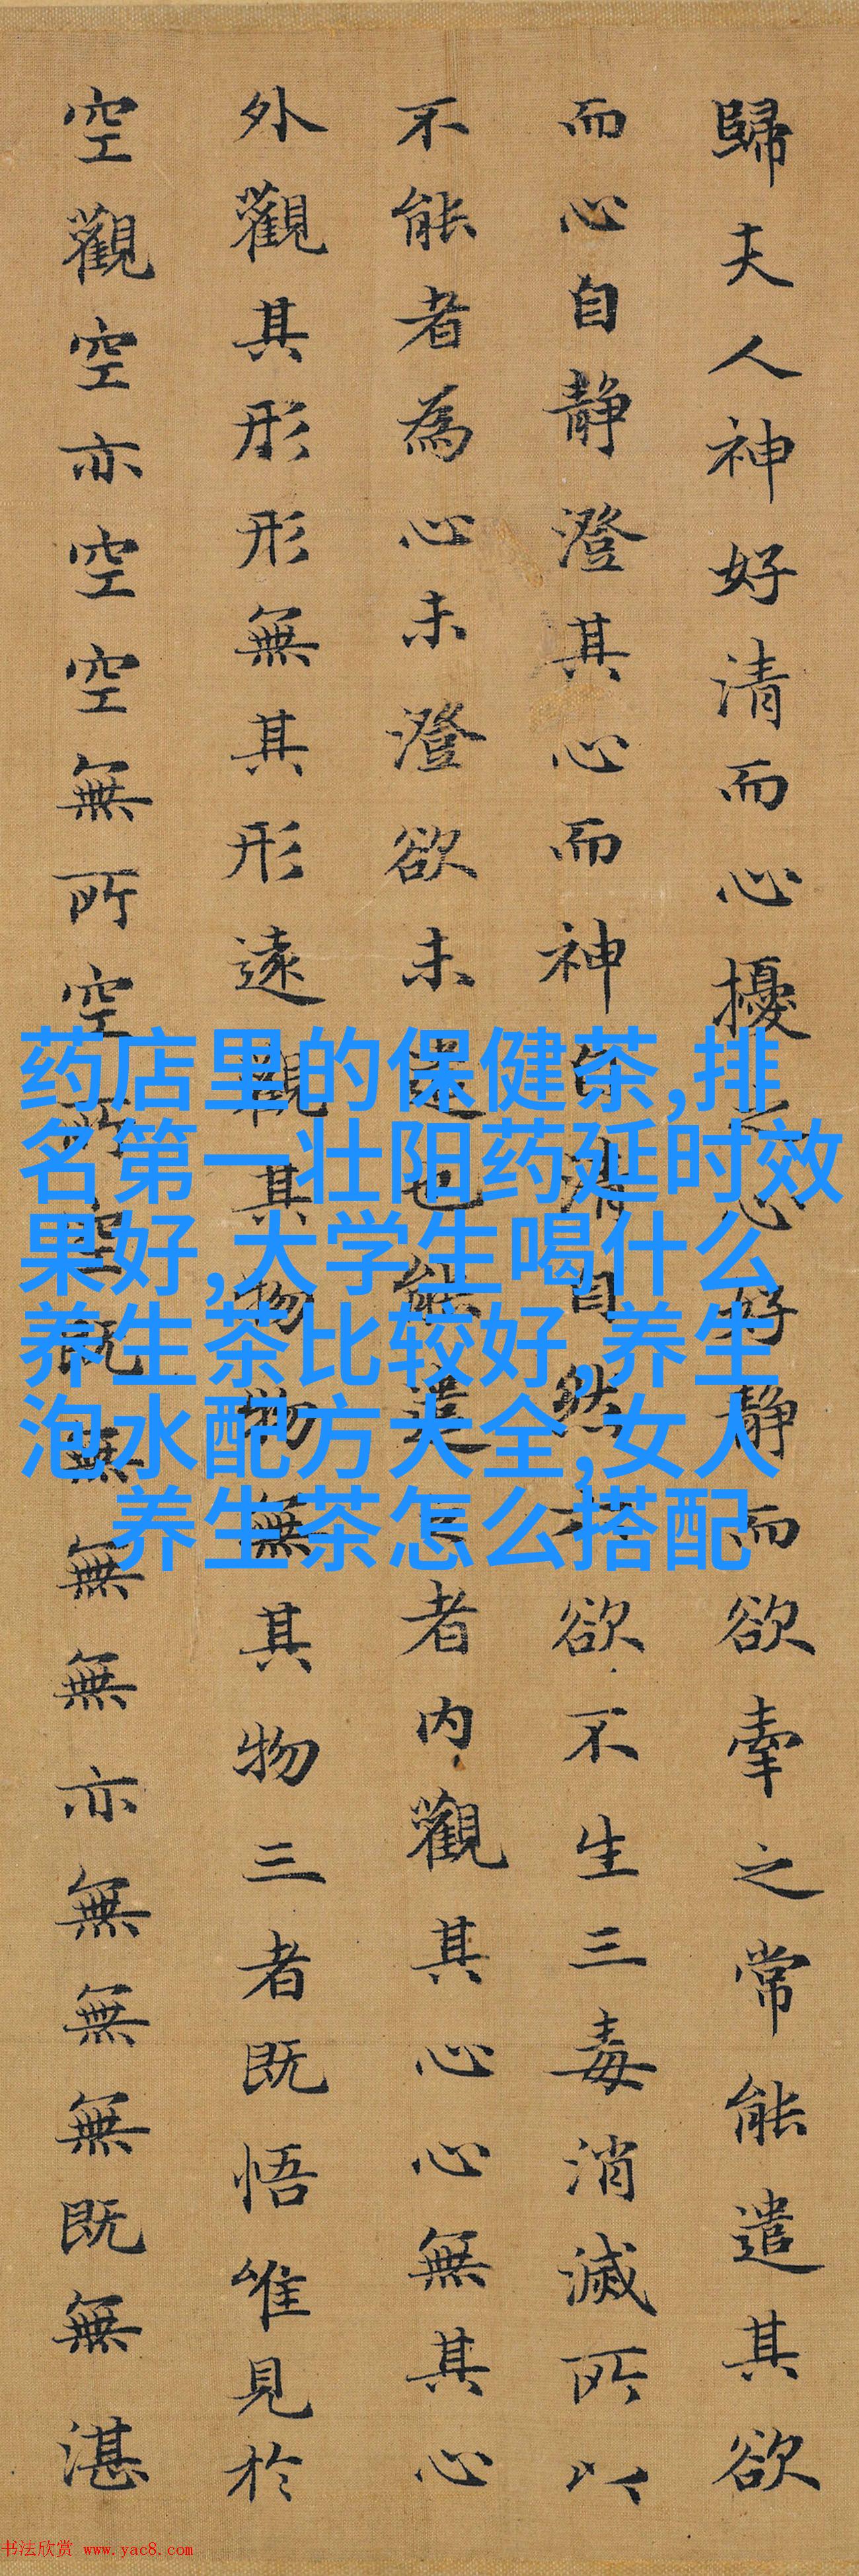 歸夫人神好清而心擾之心好靜而欲牽之常能遣其欲
而心自靜澄其心而神自清自然六欲不生三毒消滅所以
不能者為心未澄欲未遣也能遣之者內觀其心心無其心
外觀其形形無其形遠觀其物物無其物三者既悟唯見於
空觀空亦空空無所空所空既無無無亦無無無既無湛
药店里的保健茶,排
名第一壮阳药延时效
果好,大学生喝什么
养生茶比较好,养生
泡水配方大全,女人
养生茶怎么搭配
书法欣赏 www.yac8.com